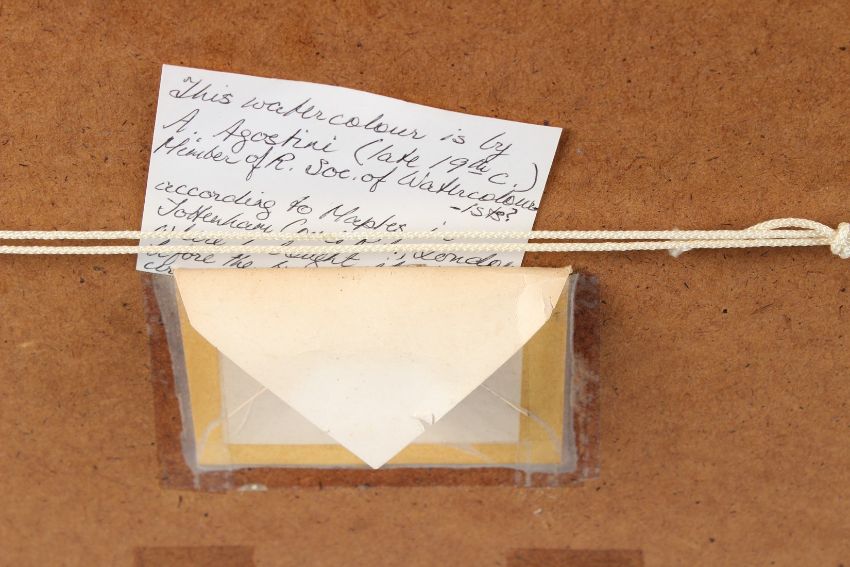 This watercolour is by
A. Agostini (late 19th c.)
Member of R. Soc. of Watercolour
-ists?
according to Maples in
Tottenham Court
where bought it, London
before the